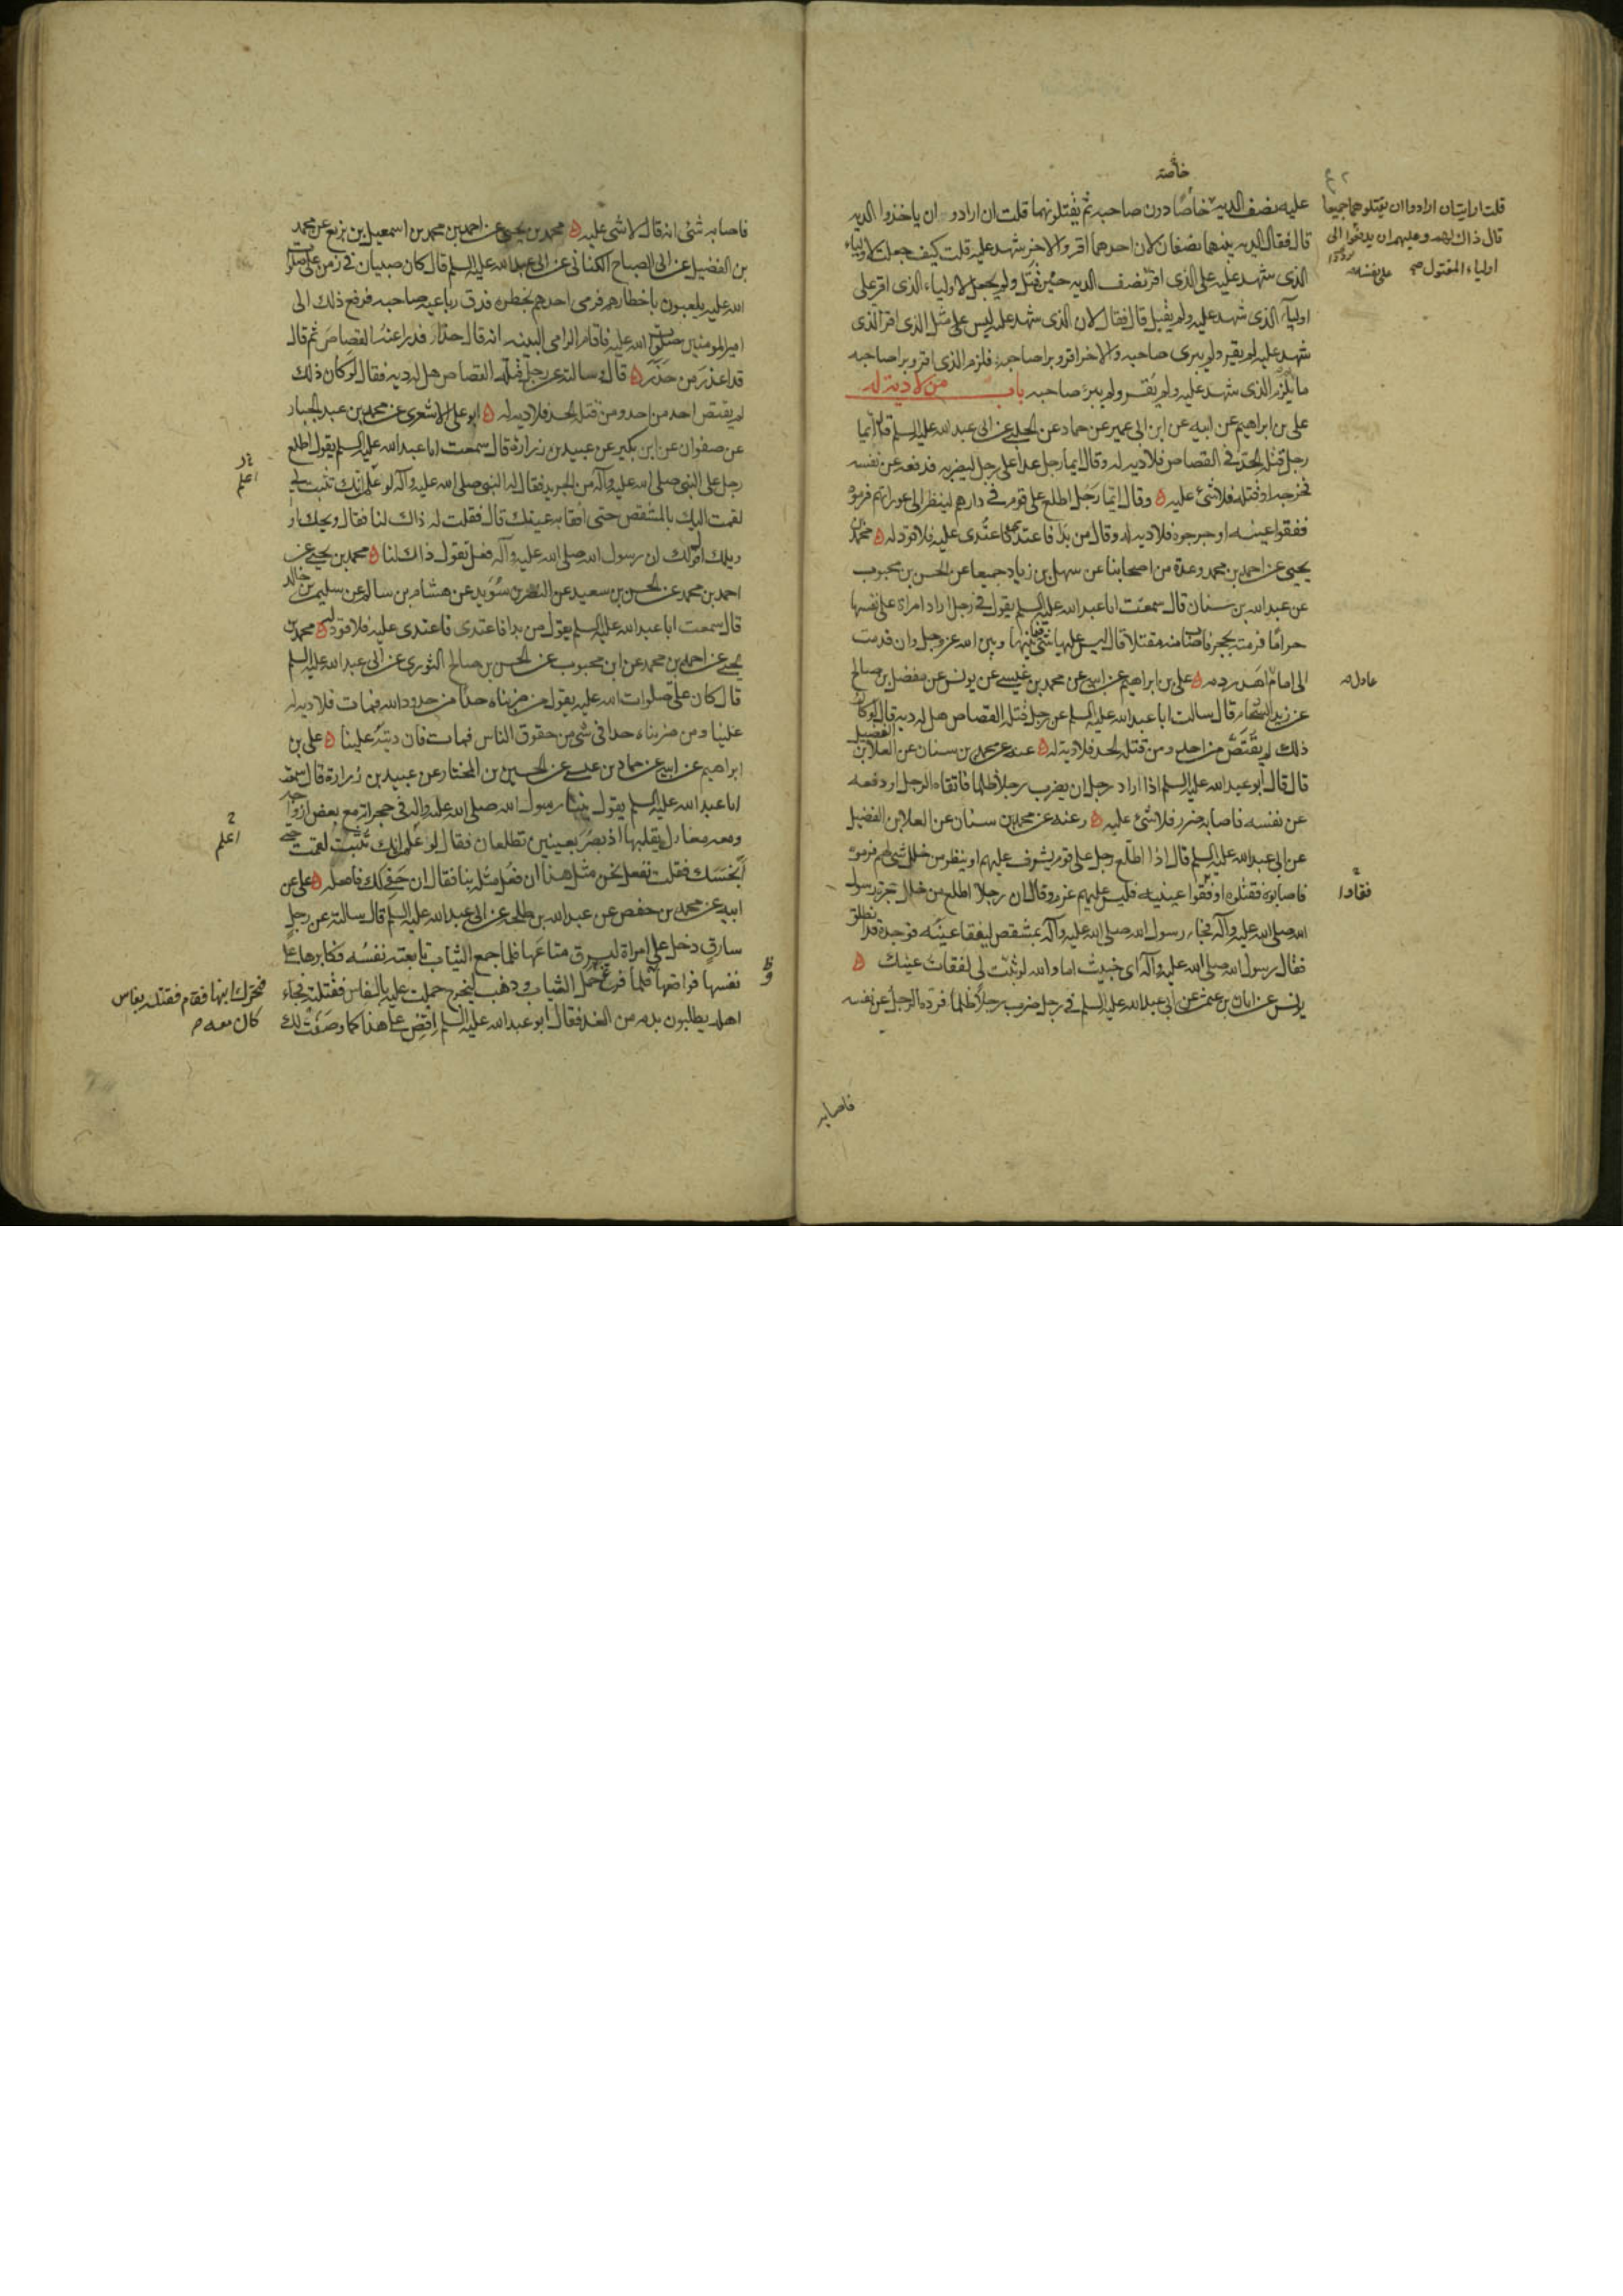 خاصة
عليه نصف الدية خاصا دون صاحبه ثم يقتلونهما قلت ان ارادو ان ياخذوا الدية
قال فقال الدية بينهما نصفان لان احدهما اقر والاخر شهد عليه قلت كيف جعلت لاولياء
الذى شهد عليه على الذى اقر نصف الدية حين قتل ولم يجعل لاولياء الذى اقر على
اولياء الذى شهد عليه ولم يقتل قال فقال لان الذى شهد عليه ليس على مثل الذى اقر الذى
شهد عليه لم يقر ولم يبرى صاحبه والاخر اقر وبرا صاحبه فلزم الذى اقر وبرا صاحبه
ما يلزم الذى شهد عليه ولم يقر ولم يبر صاحبه باب من لا دية له
على بن ابراهيم عن ابيه عن ابن ابى عمير عن حماد عن الحلبى عن ابى عبد الله عليه السلم قال ايما
رجل قتله الحد فى القصاص فلا دية له وقال ايما رجل عدا على رجل ليضربه فدفعه عن نفسه
فجرحه او قتله فلا شئ عليه وقال ايما رجل اطلع على قوم فى دارهم لينظر الى عوراتهم فرموه
ففقوا عينه او جرحوه فلا دية له وقال من بدا فاعتدى فاعتدى عليه فلا قود له محمد بن
يحيى عن احمد بن محمد وعدة من اصحابنا عن سهل بن زياد جميعا عن الحسن بن محبوب
عن عبد الله بن سنان قال سمعت ابا عبد الله عليه السلم يقول فى رجل اراد امراة على نفسها
حراما فرمته بحجر فاصابت منه مقتلا قال ليس عليها شئ فيما بينها وبين الله عز وجل وان قدمت
الى امام اهدر دمه على بن ابراهيم عن ابيه عن محمد بن عيسى عن يونس عن مفضل بن صالح
عن زيد الشحام قال سالت ابا عبد الله عليه السلم عن رجل قتله القصاص هل له دية قال لو كان
ذلك لم يقتص من احد ومن قتله الحد فلا دية له عنه عن محمد بن سنان عن العلا بن الفضيل
قال قال ابو عبد الله عليه السلم اذا اراد رجل ان يضرب رجلا ظلما فاتقاه الرجل او دفعه
عن نفسه فاصابه ضرر فلا شئ عليه وعنه عن محمد بن سنان عن العلا بن الفضيل
عن ابى عبد الله عليه السلم قال اذا اطلع رجل على قوم يشرف عليهم او ينظر من خلل شئ لهم فرموه
فاصابوه فقتلوه او فقوا عينيه فليس عليهم غرم وقال ان رجلا اطلع من خلل حجرة رسول
الله صلى الله عليه وآله فجاء رسول الله صلى الله عليه وآله بمشقص ليفقا عينه فوجده قد انطلق
فقال رسول الله صلى الله عليه وآله اى خبيث اما والله لو ثبت لى لفقات عينك
يونس عن ابان بن عثمن عن ابى عبد الله عليه السلم فى رجل ضرب رجلا ظلما فرده الرجل عن نفسه
فاصابه
قلت ارايت ان ارادوا ان يقتلوهما جميعا
قال ذاك لهم وعليهم ان يدفعوا الى
اولياء المقتول
عادل
فقأوا
فاصابه شئ انه قال لا شى عليه محمد بن يحيى عن احمد بن محمد بن اسمعيل بن بزيع عن محمد
بن الفضيل عن ابى الصباح الكنانى عن ابى عبد الله عليه السلم قال كان صبيان فى زمن على صلوات
الله عليه يلعبون باخطارهم فرمى احدهم بخطره فدق رباعية صاحبه فرفع ذلك الى
امير المومنين صلوات الله عليه فاقام الرامى البينة انه قال حذار فدرا عنه القصاص ثم قال
قد اعذر من حذر قال وسالته عن رجل قتله القصاص هل له دية فقال لو كان ذلك
لم يقتص احد من احد ومن قتله الحد فلا دية له ابو على الاشعرى عن محمد بن عبد الجبار
عن صفوان عن ابن بكير عن عبيد بن زرارة قال سمعت ابا عبد الله عليه السلم يقول اطلع
رجل على النبى صلى الله عليه وآله من الجريد فقال له النبى صلى الله عليه وآله لو علم انك تثبت لى
لقمت اليك بالمشقص حتى افقا به عينك قال فقلت له ذاك لنا فقال ويحك او
ويلك اقول لك ان رسول الله صلى الله عليه وآله فعل تقول ذاك لنا محمد بن يحيى عن
احمد بن محمد عن الحسن بن سعيد عن النضر بن سويد عن هشام بن سالم عن سليمن بن خالد
قال سمعت ابا عبد الله عليه السلم يقول من بدا فاعتدى فاعتدى عليه فلا قود له محمد بن
يحيى عن احمد بن محمد عن ابن محبوب عن الحسن بن صالح الثورى عن ابى عبد الله عليه السلم
قال كان على صلوات الله عليه يقول من ضربناه حدا من حدود الله فمات فلا دية له
علينا ومن ضربناه حدا فى شى من حقوق الناس فمات فان ديته علينا على بن
ابراهيم عن ابيه عن حماد بن عيسى عن الحسين بن المختار عن عبيد بن زرارة قال سمعت
ابا عبد الله عليه السلم يقول بينا رسول الله صلى الله عليه وآله فى حجراته مع بعض ازواجه
ومعه مغازل يقلبها اذ بصر بعينين تطلعان فقال لو علم انك تثبت لقمت حتى
انخسك فقلت نفعل نحن مثل هذا ان فعل مثله بنا فقال ان خفى لك فافعله على عن
ابيه عن محمد بن حفص عن عبد الله بن طلحة عن ابى عبد الله عليه السلم قال سالته عن رجل
سارق دخل على امراة ليسرق متاعها فلما جمع الثياب تابعته نفسه فكابرها على
نفسها فواقعها فلما فرغ حمل الثياب وذهب ليخرج حملت عليه بالفاس فقتلته فجاء
اهله يطلبون بدمه من الغد فقال ابو عبد الله عليه السلم اقض على هذا كما وصفت لك
اعلم
اعلم
فتحرك ابنها فقام فقتله بفاس
كان معه